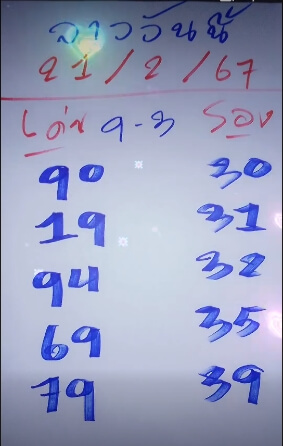 ลาววันนี้
21/2/67
เด่น 9-3 รอง
90 30
19 31
94 32
69 35
79 39